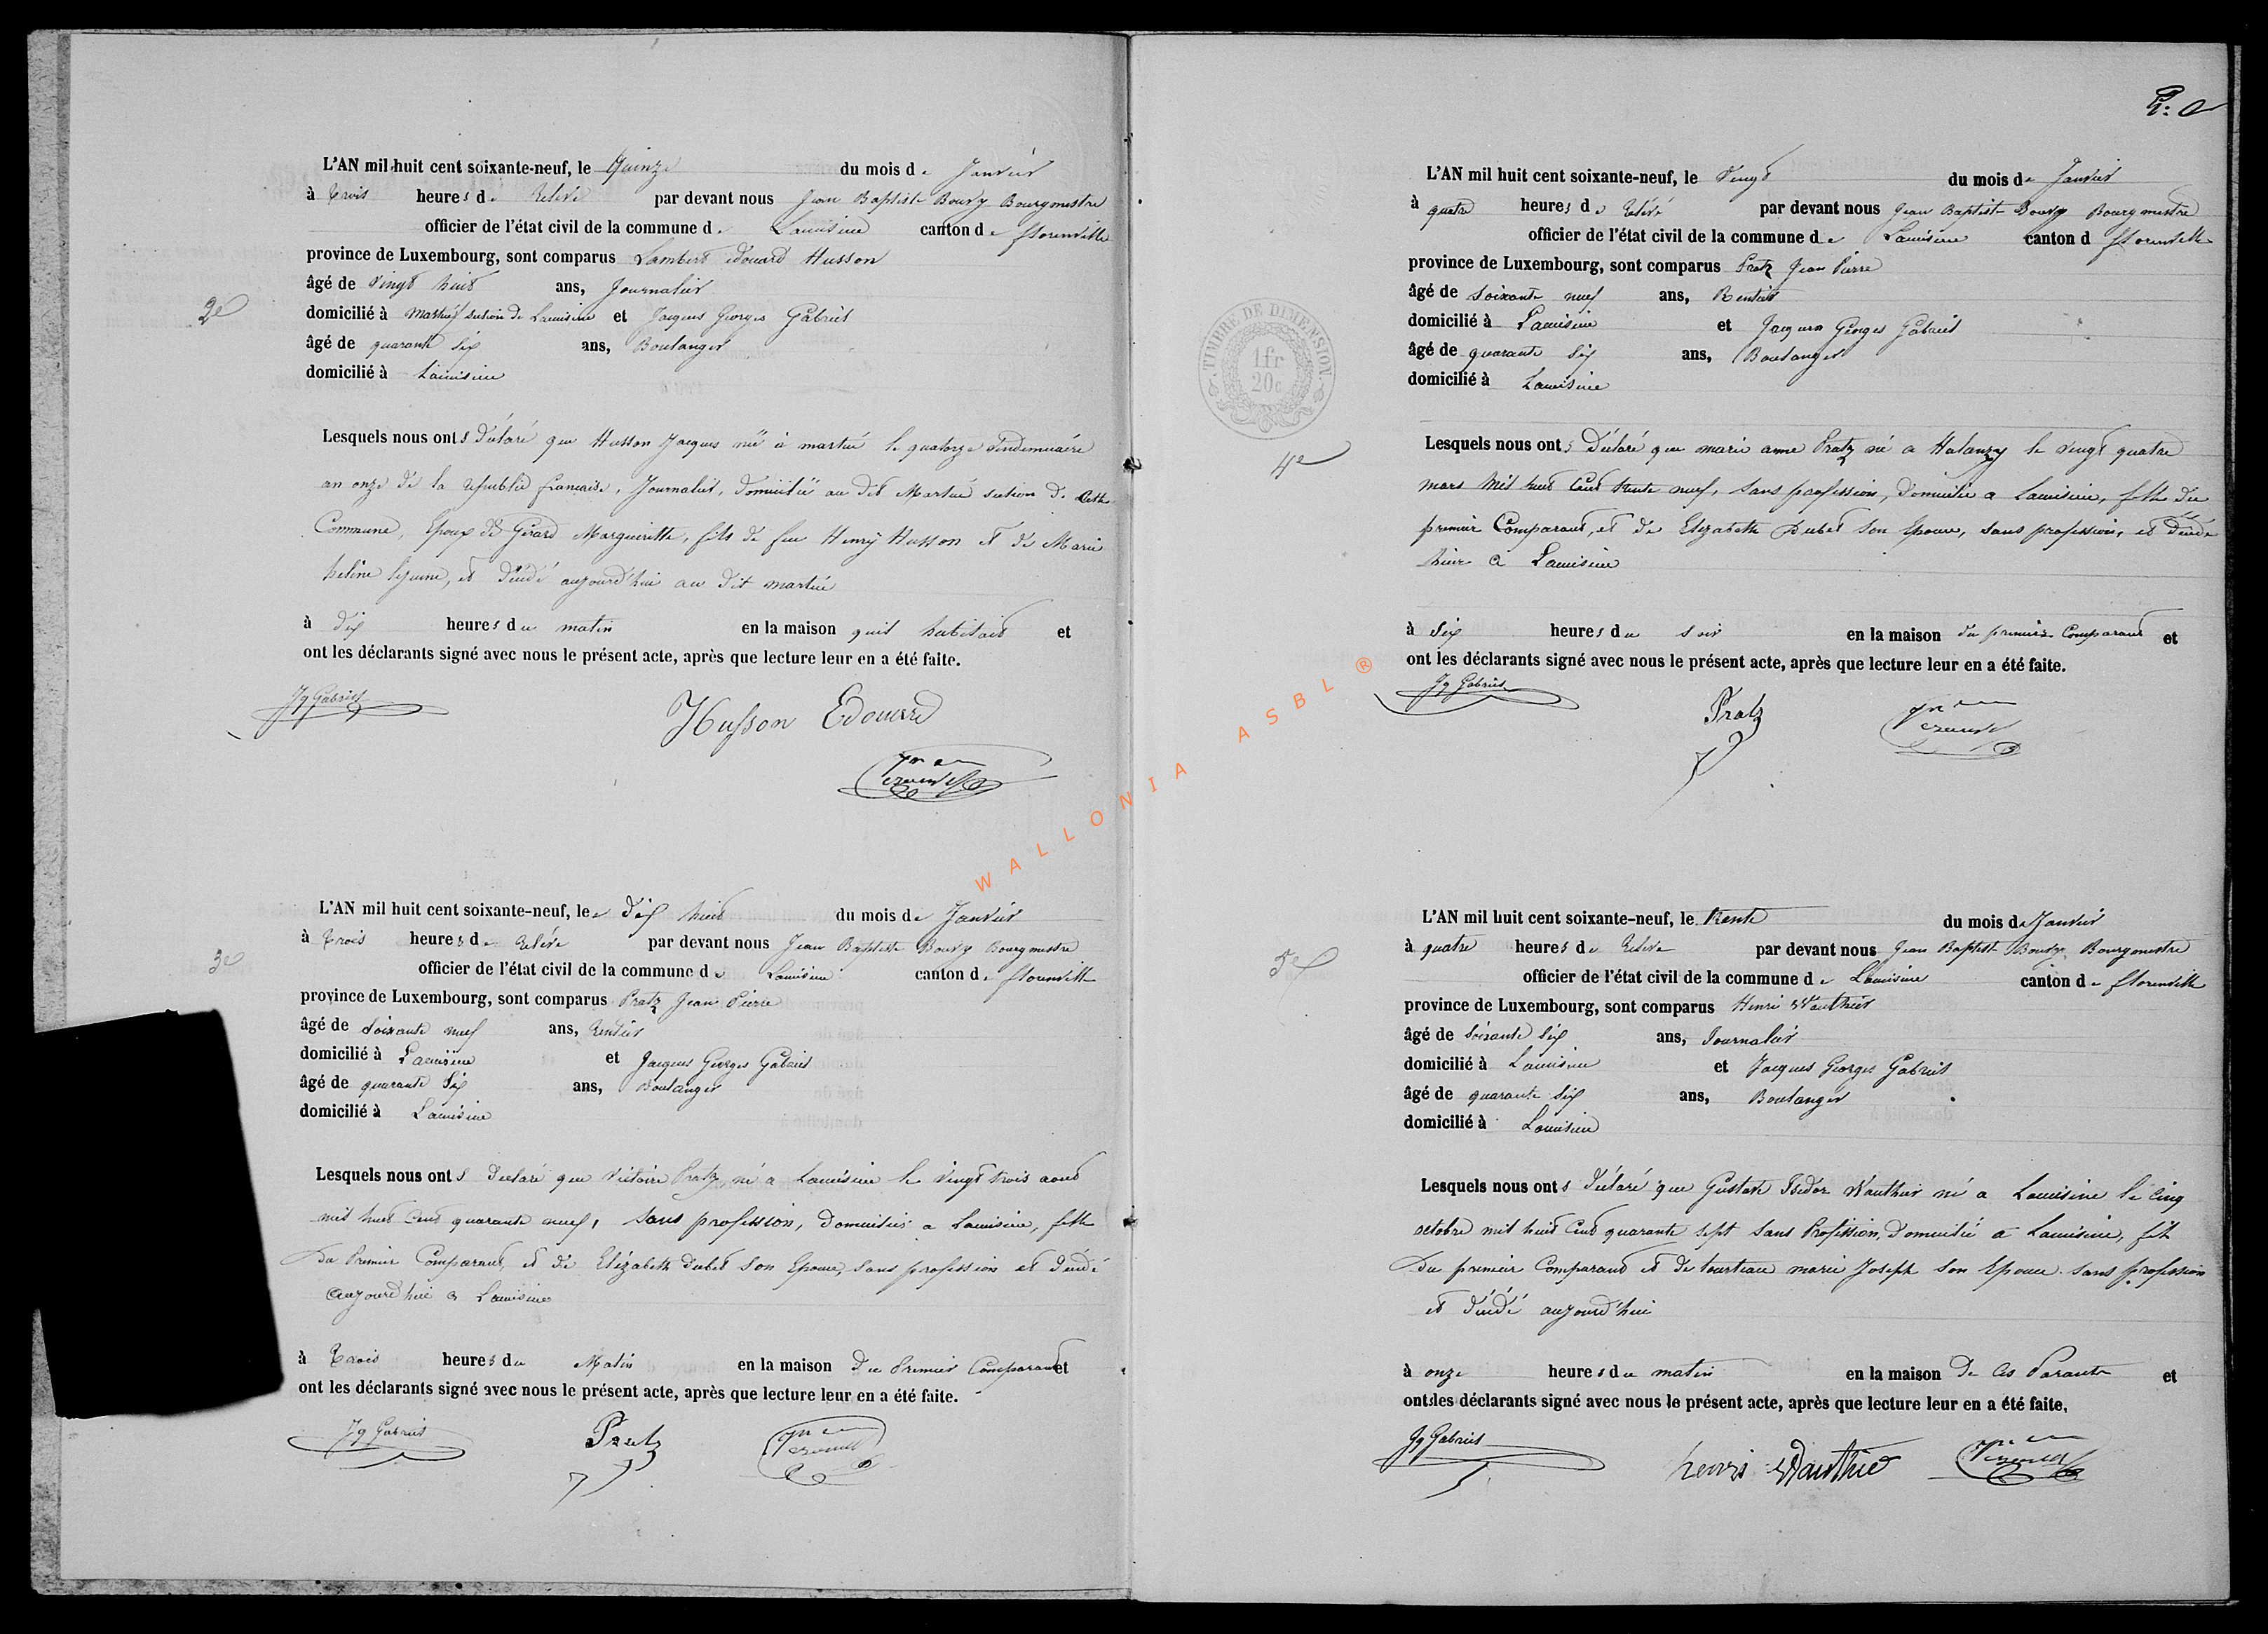 L'AN mil huit cent soixante-neuf, le Quinze du mois de Janvier
à trois heures de relévé par devant nous Jean Baptiste Bourg Bourgmestre
officier de l'état civil de la commune de Lacuisine canton de florenville
province de Luxembourg, sont comparus Lambert Edouard Husson
âgé de vingt huit ans, Journalier
2e
domicilié à martué section de Lacuisine et Jacques Georges Gabriel
âgé de quarante six ans, Boulanger
domicilié à Lacuisine
Lesquels nous onts déclaré que Husson Jacques né à martué le quatorze vendemiaire
an onze de la république française, Journalier, domicilié au dit Martué section de cette
Commune, Epoux de Gérard Margueritte, fils de feu Henry Husson et de Marie
heléne, et décédé aujourd'hui au dit martué
à dix heures du matin en la maison quil habitait et
ont les déclarants signé avec nous le présent acte, après que lecture leur en a été faite.
Jg Gabriel
Husson Edouard
L'AN mil huit cent soixante-neuf, le dix huit du mois de Janvier
à trois heures de relévé par devant nous Jean Baptiste Bourg Bourgmestre
3e
officier de l'état civil de la commune de Lacuisine canton de florenville
province de Luxembourg, sont comparus Pratz Jean Pierre
âgé de soixante neuf ans, rentier
domicilié à Lacuisine et Jacques Georges Gabriel
âgé de quarante six ans, Boulanger
domicilié à Lacuisine
Lesquels nous onts déclaré que Victoire Pratz, né a Lacuisine le vingt trois aout
mil huit cent quarante neuf, sans profession, domiciliée a Lacuisine, fille
du Premier Comparant, et de Elizabeth Dubet son Epouse, sans profession et décédé
aujourd'hui a Lacuisine
à trois heures du Matin en la maison du Premier Comparant et
ont les déclarants signé avec nous le présent acte, après que lecture leur en a été faite.
Jg Gabriel Pratz
L'AN mil huit cent soixante-neuf, le vingt du mois de Janvier
à quatre heures de relévé par devant nous Jean Baptiste Bourg Bourgmestre
officier de l'état civil de la commune de Lacuisine canton d florenville
province de Luxembourg, sont comparus Pratz Jean Pierre
âgé de soixante neuf ans, Rentier
domicilié à Lacuisine et Jacques Georges Gabriel
âgé de quarante six ans, Boulanger
domicilié à Lacuisine
TIMBRE DE DIMENSION
1fr
20c
4e
Lesquels nous onts déclaré que marie anne Pratz né a Halanzy le vingt quatre
mars mil huit cent trente neuf, sans profession, domicilié a Lacuisine, fille du
premier Comparant, et de Elizabeth Dubet son Epouse, sans profession, et décédé
hier a Lacuisine
à six heures du soir en la maison du premier Comparant et
ont les déclarants signé avec nous le présent acte, après que lecture leur en a été faite.
Jg Gabriel
Pratz
L'AN mil huit cent soixante-neuf, le trente du mois de Janvier
à quatre heures de relévé par devant nous Jean Baptiste Bourg Bourgmestre
5e
officier de l'état civil de la commune de Lacuisine canton de florenville
province de Luxembourg, sont comparus Henri Wauthier
âgé de soixante six ans, Journalier
domicilié à Lacuisine et Jacques Georges Gabriel
âgé de quarante six ans, Boulanger
domicilié à Lacuisine
Lesquels nous onts déclaré que Gustave Isidor Wauthier né a Lacuisine le cinq
octobre mil huit cent quarante sept sans Profession, domicilié a Lacuisine, fils
du premier Comparant et de marie Joseph son Epouse sans profession
et décédé aujourd'hui
à onze heures du matin en la maison de ces Parants et
ont les déclarants signé avec nous le présent acte, après que lecture leur en a été faite.
Jg Gabriel
henri Wauthier
WALLONIA ASBL ®